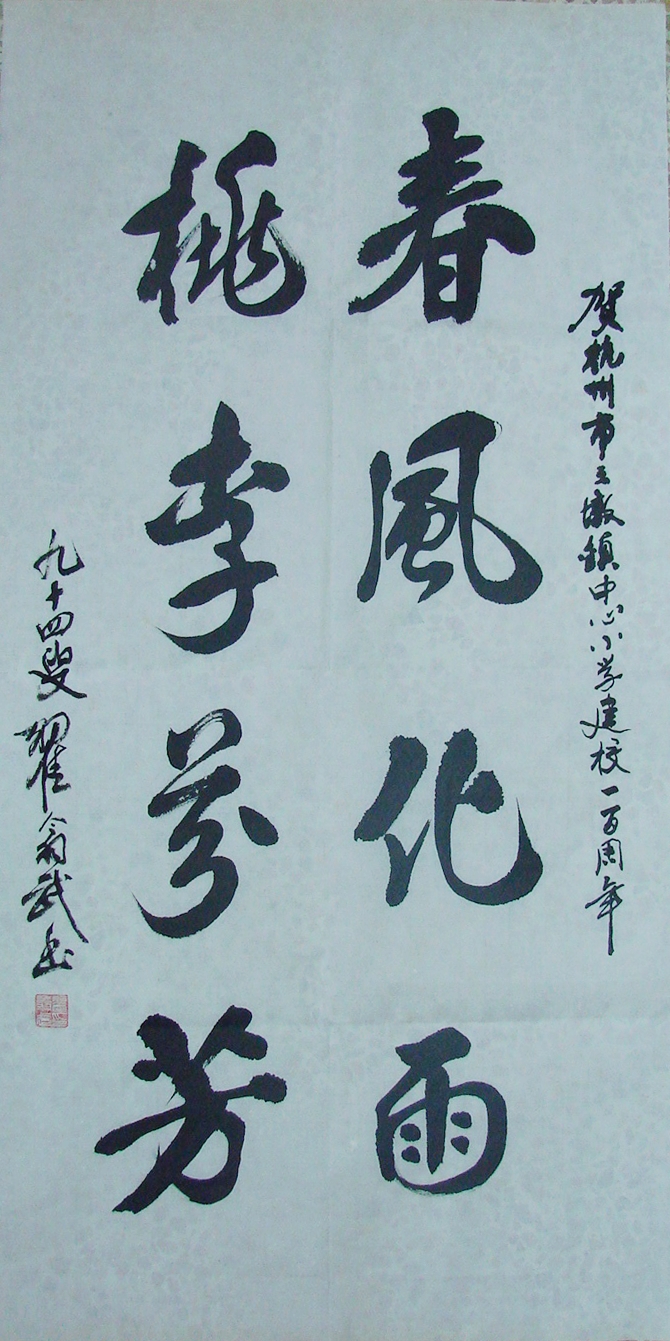 贺杭州市三墩鎮中心小学建校一百周年
春風化雨
桃李芬芳
九十四叟翟翁武书